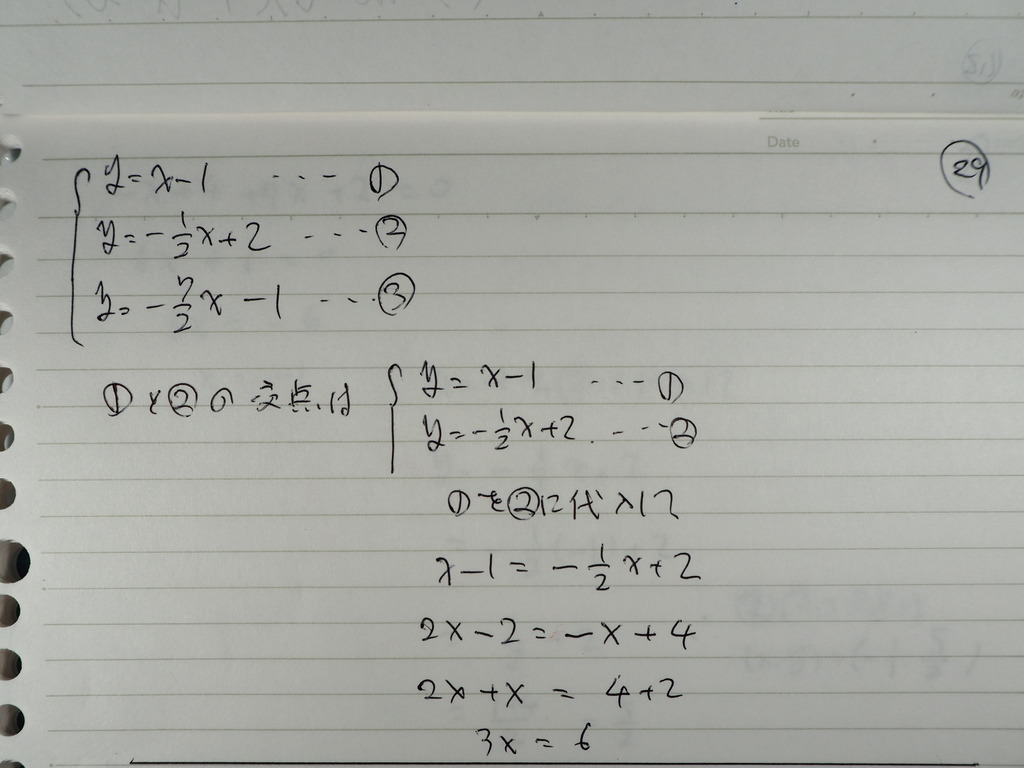 Date
29
y = x - 1 ... ①
y = -1/2 x + 2 ... ②
y = -7/2 x - 1 ... ③
①と②の交点は
y = x - 1 ... ①
y = -1/2 x + 2 ... ②
①を②に代入して
x - 1 = -1/2 x + 2
2x - 2 = -x + 4
2x + x = 4 + 2
3x = 6